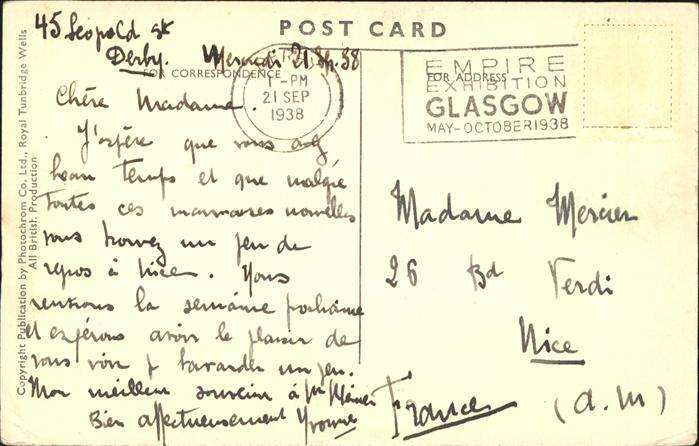 POST CARD
Copyright Publication by Photochrom Co. Ltd., Royal Tunbridge Wells
All British Production
45 Leopold St
Derby. Mercredi 21 Sp. 38
FOR CORRESPONDENCE
1-PM
21 SEP
1938
Chère Madame.
J'espère que vous avez
beau temps et que malgré
toutes ces mauvaises nouvelles
vous trouvez un peu de
repos à Nice. Nous
rentrons la semaine prochaine
et espérons avoir le plaisir de
vous voir & bavarder un peu.
Mon meilleur souvenir à Mr Mercier
Bien affectueusement Yvonne
FOR ADDRESS
EMPIRE
EXHIBITION
GLASGOW
MAY-OCTOBER 1938
Madame Mercier
26 Bd Verdi
Nice
France (A.M)